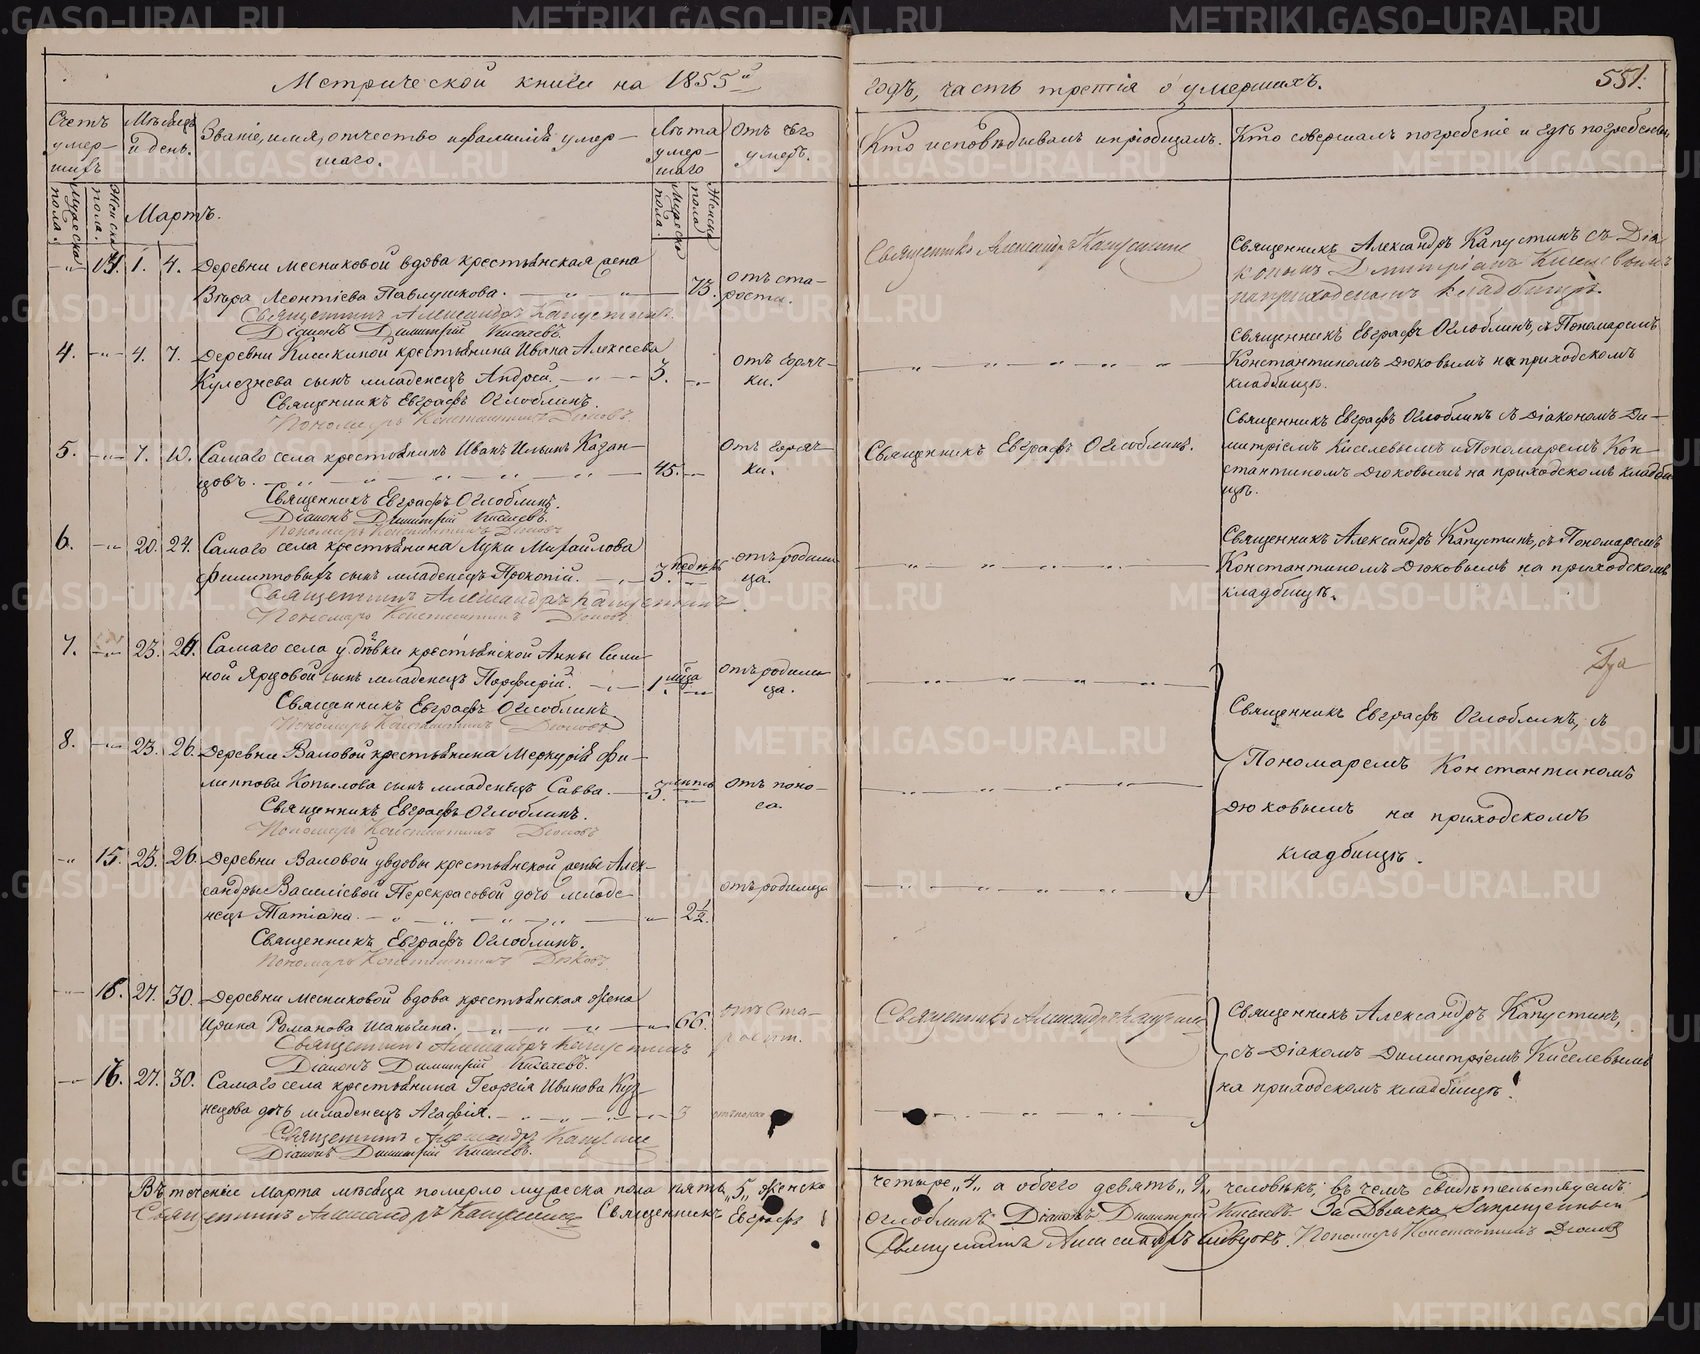 Метрической книги на 1855й
Счетъ умер-шихъ
Мужеска пола.
Женска пола.
Мѣсяцъ и день.
Званіе, имя, отчество и фамилія умер-
шаго.
Лѣта умер-шаго
Мужеска пола.
Женска пола
Отъ чего умеръ.
Мартъ.
1. 4. Деревни Месниковой вдова крестьянская жена
Вѣра Леонтіева Павлушкова. 73. отъ ста-
рости.
Священникъ Александръ Капустинъ.
Діаконъ Димитрій Киселевъ.
4. 4. 7. Деревни Кишкиной крестьянина Ивана Алексѣева
Кулезнева сынъ младенецъ Андрей. 3. отъ горяч-
ки.
Священникъ Евграфъ Оглоблинъ.
Пономарь Константинъ Дюковъ
5. 7. 10. Самаго села крестьянинъ Иванъ Ильинъ Казан-
цовъ. 45. Отъ горяч-
ки.
Священникъ Евграфъ Оглоблинъ.
Діаконъ Димитрій Киселевъ.
Пономарь Константинъ Дюковъ
6. 20. 24. Самаго села крестьянина Луки Михайлова
Филипповыхъ сынъ младенецъ Прокопій. 3. недѣль отъ родим-
ца.
Священникъ Александръ Капустинъ
Пономарь Константинъ Дюковъ
7. 23. 26. Самаго села у дѣвки крестьянской Анны Сили-
ной Ярцовой сынъ младенецъ Порфирій. 1 мѣсяца отъ родим-
ца.
Священникъ Евграфъ Оглоблинъ
Пономарь Константинъ Дюковъ
8. 23. 26. Деревни Валовой крестьянина Меркурія Фи-
липпова Копылова сынъ младенецъ Савва. 3. отъ поно-
са.
Священникъ Евграфъ Оглоблинъ.
Пономарь Константинъ Дюковъ
15. 23. 26. Деревни Валовой у вдовы крестьянской жены Алек-
сандры Василіевой Перекрасовой дочь младе-
нецъ Татіана. 2½. отъ родимца
Священникъ Евграфъ Оглоблинъ.
Пономарь Константинъ Дюковъ
27. 30. Деревни Месниковой вдова крестьянская жена
Ирина Романова Шаньгина. 66. отъ ста-
рости.
Священникъ Александръ Капустинъ
Діаконъ Димитрій Киселевъ.
16. 27. 30. Самаго села крестьянина Георгія Иванова Куз-
нецова дочь младенецъ Агафія. 3 отъ поноса
Священникъ Александръ Капустинъ
Діаконъ Димитрій Киселевъ.
Въ теченіе Марта мѣсяца померло мужеска пола пять „5„ женска
Священникъ Александръ Капустинъ Священникъ Евграфъ
годъ, часть третія о умершихъ.
551.
Кто исповѣдывалъ и пріобщалъ.
Кто совершалъ погребеніе и гдѣ погребены.
Священникъ Александръ Капустинъ
Священникъ Александръ Капустинъ съ Діа-
кономъ Димитріемъ Киселевымъ
на приходскомъ кладбищѣ.
Священникъ Евграфъ Оглоблинъ, съ Пономаремъ
Константиномъ Дюковымъ на приходскомъ
кладбищѣ.
Священникъ Евграфъ Оглоблинъ.
Священникъ Евграфъ Оглоблинъ съ Діакономъ Ди-
митріемъ Киселевымъ и Пономаремъ Кон-
стантиномъ Дюковымъ на приходскомъ кладби-
щѣ.
Священникъ Александръ Капустинъ, съ Пономаремъ
Константиномъ Дюковымъ на приходскомъ
кладбищѣ.
Священникъ Евграфъ Оглоблинъ, съ
Пономаремъ Константиномъ
Дюковымъ на приходскомъ
кладбищѣ.
Священникъ Александръ Капустинъ
Священникъ Александръ Капустинъ,
съ Діакомъ Димитріемъ Киселевымъ
на приходскомъ кладбищѣ.
четыре „4„ а обоего девять „9„ человѣкъ; въ чемъ свидѣтельствуемъ:
Оглоблинъ Діаконъ Димитрій Киселевъ. За Дьячка Запрещенный
Пономарь Константинъ Дюковъ
METRIKI.GASO-URAL.RU